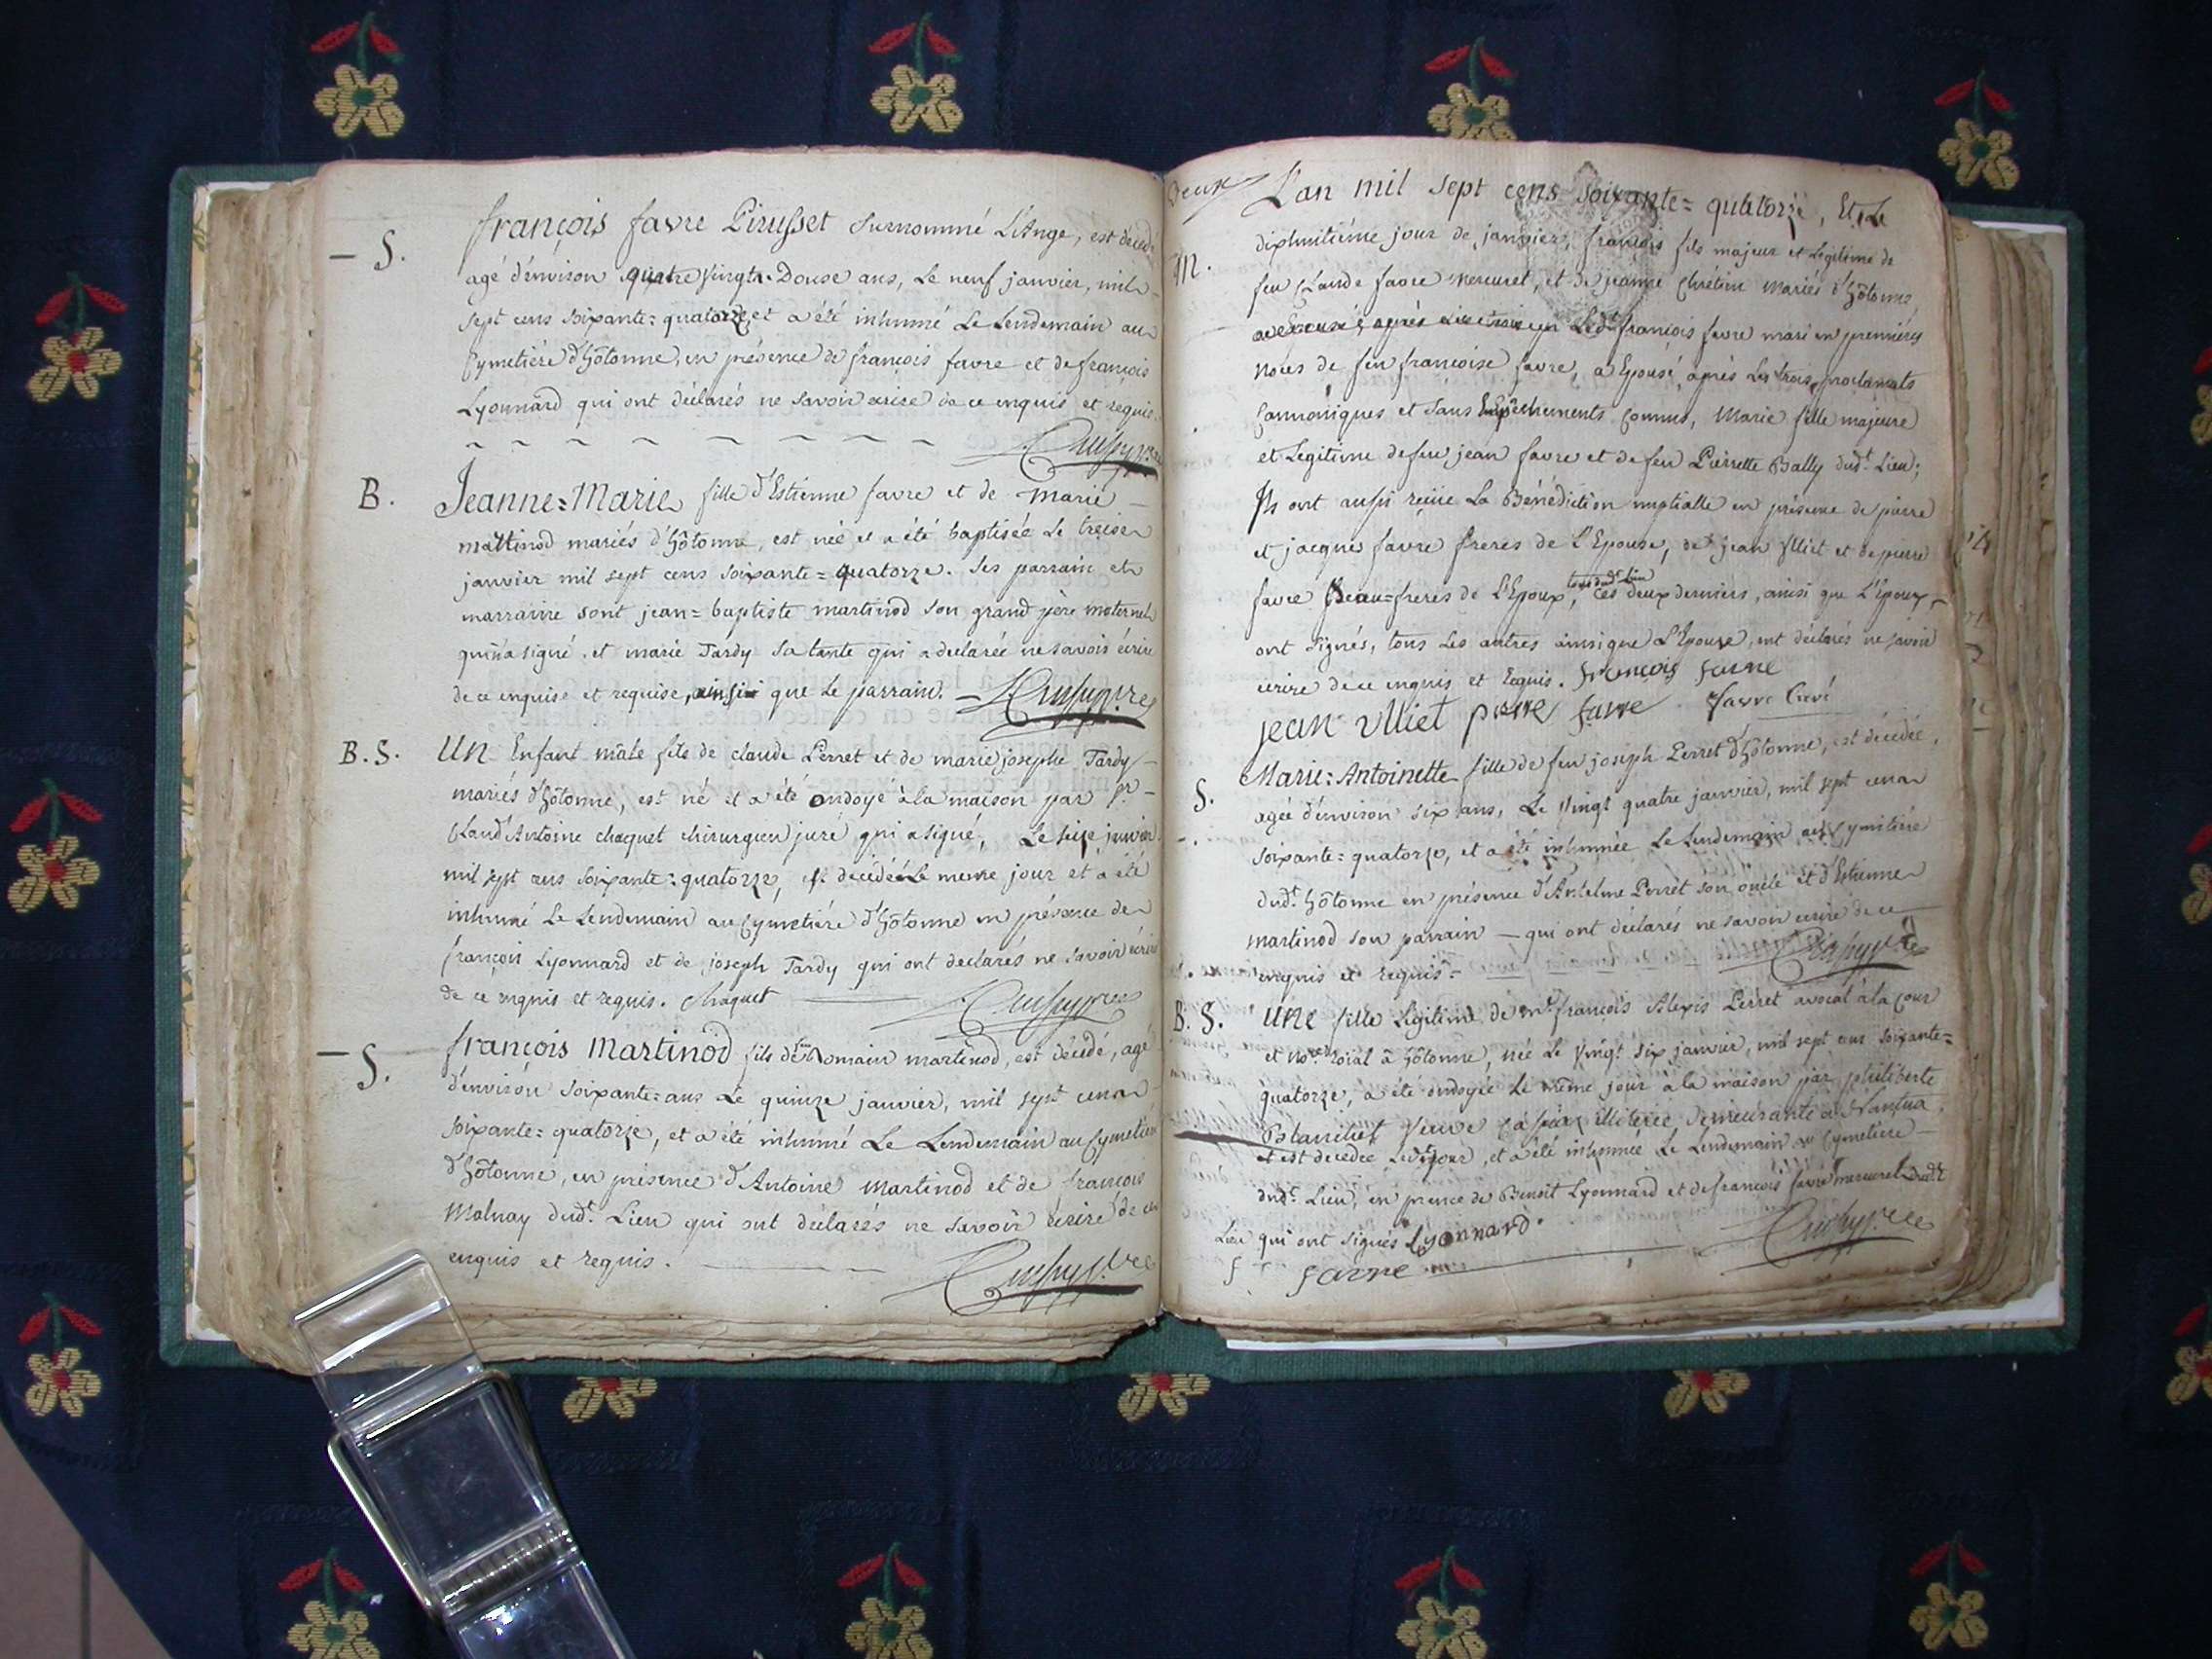 S.
françois favre Pirusset surnommé L'Ange, est décédé
agé d'environ quatre Vingts Douse ans, Le neuf janvier, mil
sept cens soixante=quatorze et a été inhumé Le Lendemain au
Cymetiére d'hôtonne, en présence de françois favre et de françois
Lyonnard qui ont déclarés ne savoir écrire de ce enquis et requis.
B.
Jeanne=Marie fille d'Estienne favre et de Marie
martinod mariés d'hôtonne, est née et a été baptisée Le treise
janvier mil sept cens soixante=quatorze. Ses parrain et
marraine sont jean=baptiste martinod son grand père maternel
qui a signé et marie Tardy sa tante qui a déclarée ne savoir écrire
de ce enquise et requise, ainsi que Le parrain.
B. S.
Un Enfant mâle fils de claude Perret et de marie josephe Tardy
mariés d'hôtonne, est né et a été ondoyé à la maison par Sr
Claud' Antoine chaquet chirurgien juré qui a signé, Le seize janvier
mil sept cens soixante=quatorze, est décédé Le meme jour et a été
inhumé Le Lendemain au Cymetiére d'hôtonne en présence de
françois Lyonnard et de joseph Tardy qui ont declarés ne savoir écrire
de ce enquis et requis. Chaquet
S.
françois Martinod fils de feu Romain martinod, est décédé, agé
d'environ soixante=ans Le quinze janvier, mil sept cens
soixante=quatorze, et a été inhumé Le Lendemain au Cymetiére
d'hôtonne, en présence d'Antoine Martinod et de françois
Malnay dudt. Lieu qui ont déclarés ne savoir écrire de ce
enquis et requis.
Deux
L'an mil sept cens soixante=quatorze, Et Le
M.
dixhuitiéme jour de janvier, françois fils majeur et Légitime de
feu Claude favre mercuret, et de jeanne Chrétin mariés d'hôtonne
Ledt françois favre mari en premiéres
noces de feu françoise favre, a Epousé, aprés Les trois proclamats
Cannoniques et sans Empêchements Connus, Marie fille majeure
et Legitime de feu jean favre et de feu Pierrette Bally dudt. Lieu;
Ils ont aussi reçüe La Bénédiction nuptialle en présence de pierre
et jacque favre freres de L'Epouse, de jean Ulliet et de pierre
favre Beau=freres de L'Epoux, tous dudt Lieu ces deux derniers, ainsi que L'époux
ont signés, tous Les autres ainsi que L'Epouse, ont déclarés ne savoir
écrire de ce enquis et requis. françois favre
jean ulliet pierre favre favre Curé
S.
Marie=Antoinette fille de feu joseph Perret d'hôtonne, est décédée,
agée d'environ six ans, Le Vingt quatre janvier, mil sept cens
soixante=quatorze, et a été inhumée Le Lendemain au Cymitiére
dudt. hôtonne en présence d'Anselme Perret son oncle et d'Estienne
martinod son parrain — qui ont déclarés ne savoir écrire de ce
enquis et requis.
B. S.
Une fille Légitime de mr. françois Alexis Perret avocat à la Cour
et no.re roïal à hôtonne, née Le Vingt six janvier, mil sept cens soixante=
quatorze, a été ondoyée Le même jour à la maison par philiberte
Blanchet Veuve demeurante à Nantua,
et est decedée Ledt jour, et a été inhumée Le Lendemain au Cymetiere
dudt. Lieu, en prence de Benoit Lyonnard et de françois favre mercuret dudt
Lieu qui ont signés Lyonnard.
f favre